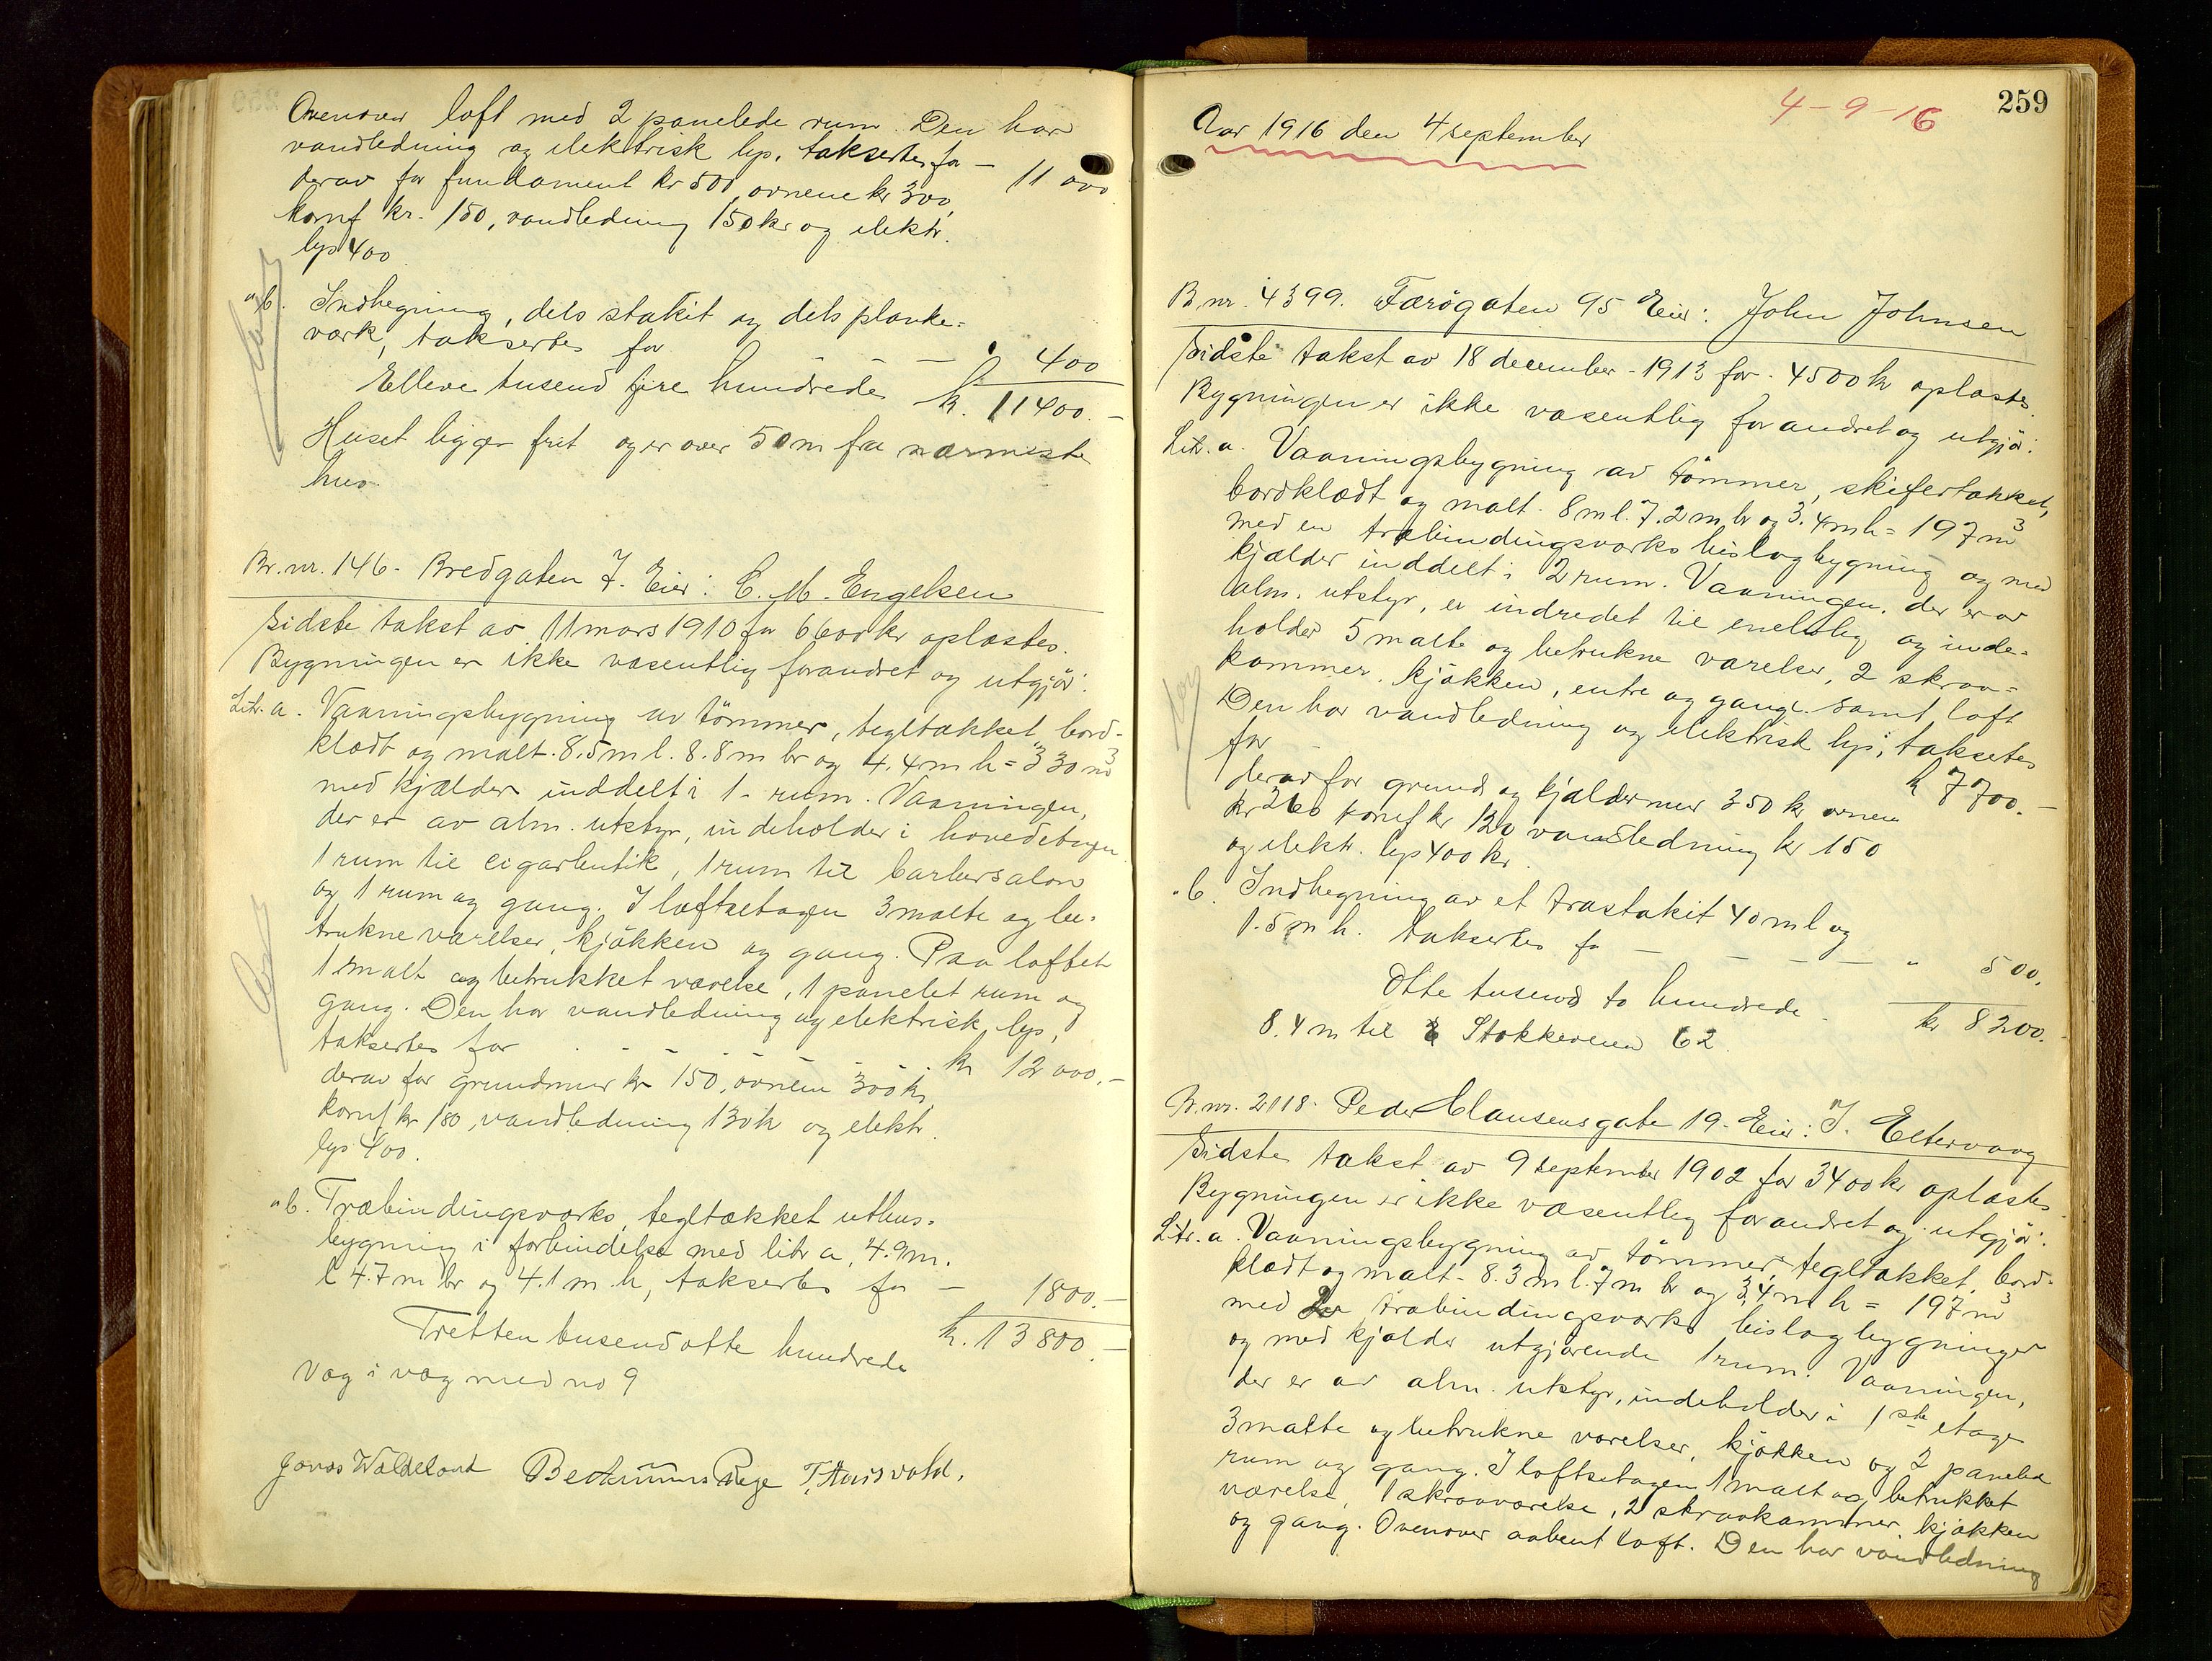 Ovenover loft med 2 panelede rum. Den har
vandledning og elektrisk lys, taksertes for — 11 000
derav for fundament kr 500, ovnene kr 300,
komf kr. 150, vandledning 150 kr og elektr.
lys 400
" b. Indhegning, dels stakit og dels planke-
værk, taksertes for — — — " 400
Elleve tusend fire hundrede kr. 11400.—
Huset ligger frit og er over 50 m fra nærmeste
hus
Br. nr. 146. Bredgaten 7. Eier: C. M. Engelsen
Sidste takst av 11 mars 1910 for 6600 kr oplæstes.
Bygningen er ikke væsentlig forandret og utgjör:
Litr. a. Vaaningsbygning av tömmer, tegltækket, bord-
klædt og malt. 8.5 m l. 8.8 m br og 4.4 m h = 330 m³
med kjælder inddelt i 1 rum. Vaaningen,
der er av alm. utstyr, indeholder i hovedetagen
1 rum til cigarbutik, 1 rum til barbersalon
og 1 rum og gang. I loftsetagen 3 malte og be-
trukne værelser, kjökken og gang. Paa loftet
1 malt og betrukket værelse, 1 panelet rum og
gang. Den har vandledning og elektrisk lys,
taksertes for . - - - - . kr 12 000.—
derav for grundmur kr 150, ovnene 300 kr,
komf kr 180, vandledning 130 kr og elektr.
lys 400.
" b. Træbindingsværks, tegltækket uthus-
bygning i forbindelse med litr a, 4.9 m.
l 4.7 m br og 4.1 m h, taksertes for — 1800.—
Tretten tusend otte hundrede kr. 13 800.—
Væg i væg med no 9
Jonas Waldeland T. Hausvold.
259
4-9-16
Aar 1916 den 4 september
B nr. 4399. Færögaten 95 Eier: John Johnsen
Sidste takst av 18 december 1913 for 4500 kr oplæstes.
Bygningen er ikke væsentlig forandret og utgjör:
Litr. a. Vaaningsbygning av tömmer, skifertækket,
bordklædt og malt. 8 m l. 7.2 m br og 3.4 m h = 197 m³
med en træbindingsværks bislagbygning og med
kjælder inddelt i 2 rum. Vaaningen, der er av
alm. utstyr, er indredet til enebolig og inde-
holder 5 malte og betrukne værelser, 2 skraa-
kammer, kjökken, entre og gange samt loft
Den har vandledning og elektrisk lys, taksertes
for kr 7700.—
derav for grund og kjældermur 350 kr ovnene
kr 260 komf kr 120 vandledning kr 150
og elektr. lys 400 kr.
" b. Indhegning av et træstakit 40 m l og
1.5 m h. taksertes for — — — — " 500.
Otte tusend to hundrede kr 8200.
8.4 m til Stokkaveien 62
Br. nr. 2118. Peder Clausensgate 19. Eier: J. Eltervaag
Sidste takst av 9 september 1902 for 3400 kr oplæstes
Bygningen er ikke væsentlig forandret og utgjör:
Litr. a. Vaaningsbygning av tömmer, tegltækket, bord-
klædt og malt. 8.3 m l. 7 m br og 3.4 m h = 197 m³
med 2 træbindingsværks bislagbygninger
og med kjælder utgjörende 1 rum. Vaaningen,
der er av alm. utstyr, indeholder i 1ste etage
3 malte og betrukne værelser, kjökken og 2 panelede
rum og gang. I loftsetagen 1 malt og betrukket
værelse, 1 skraaværelse, 2 skraakammer, kjökken
og gang. Ovenover aabent loft. Den har vandledning